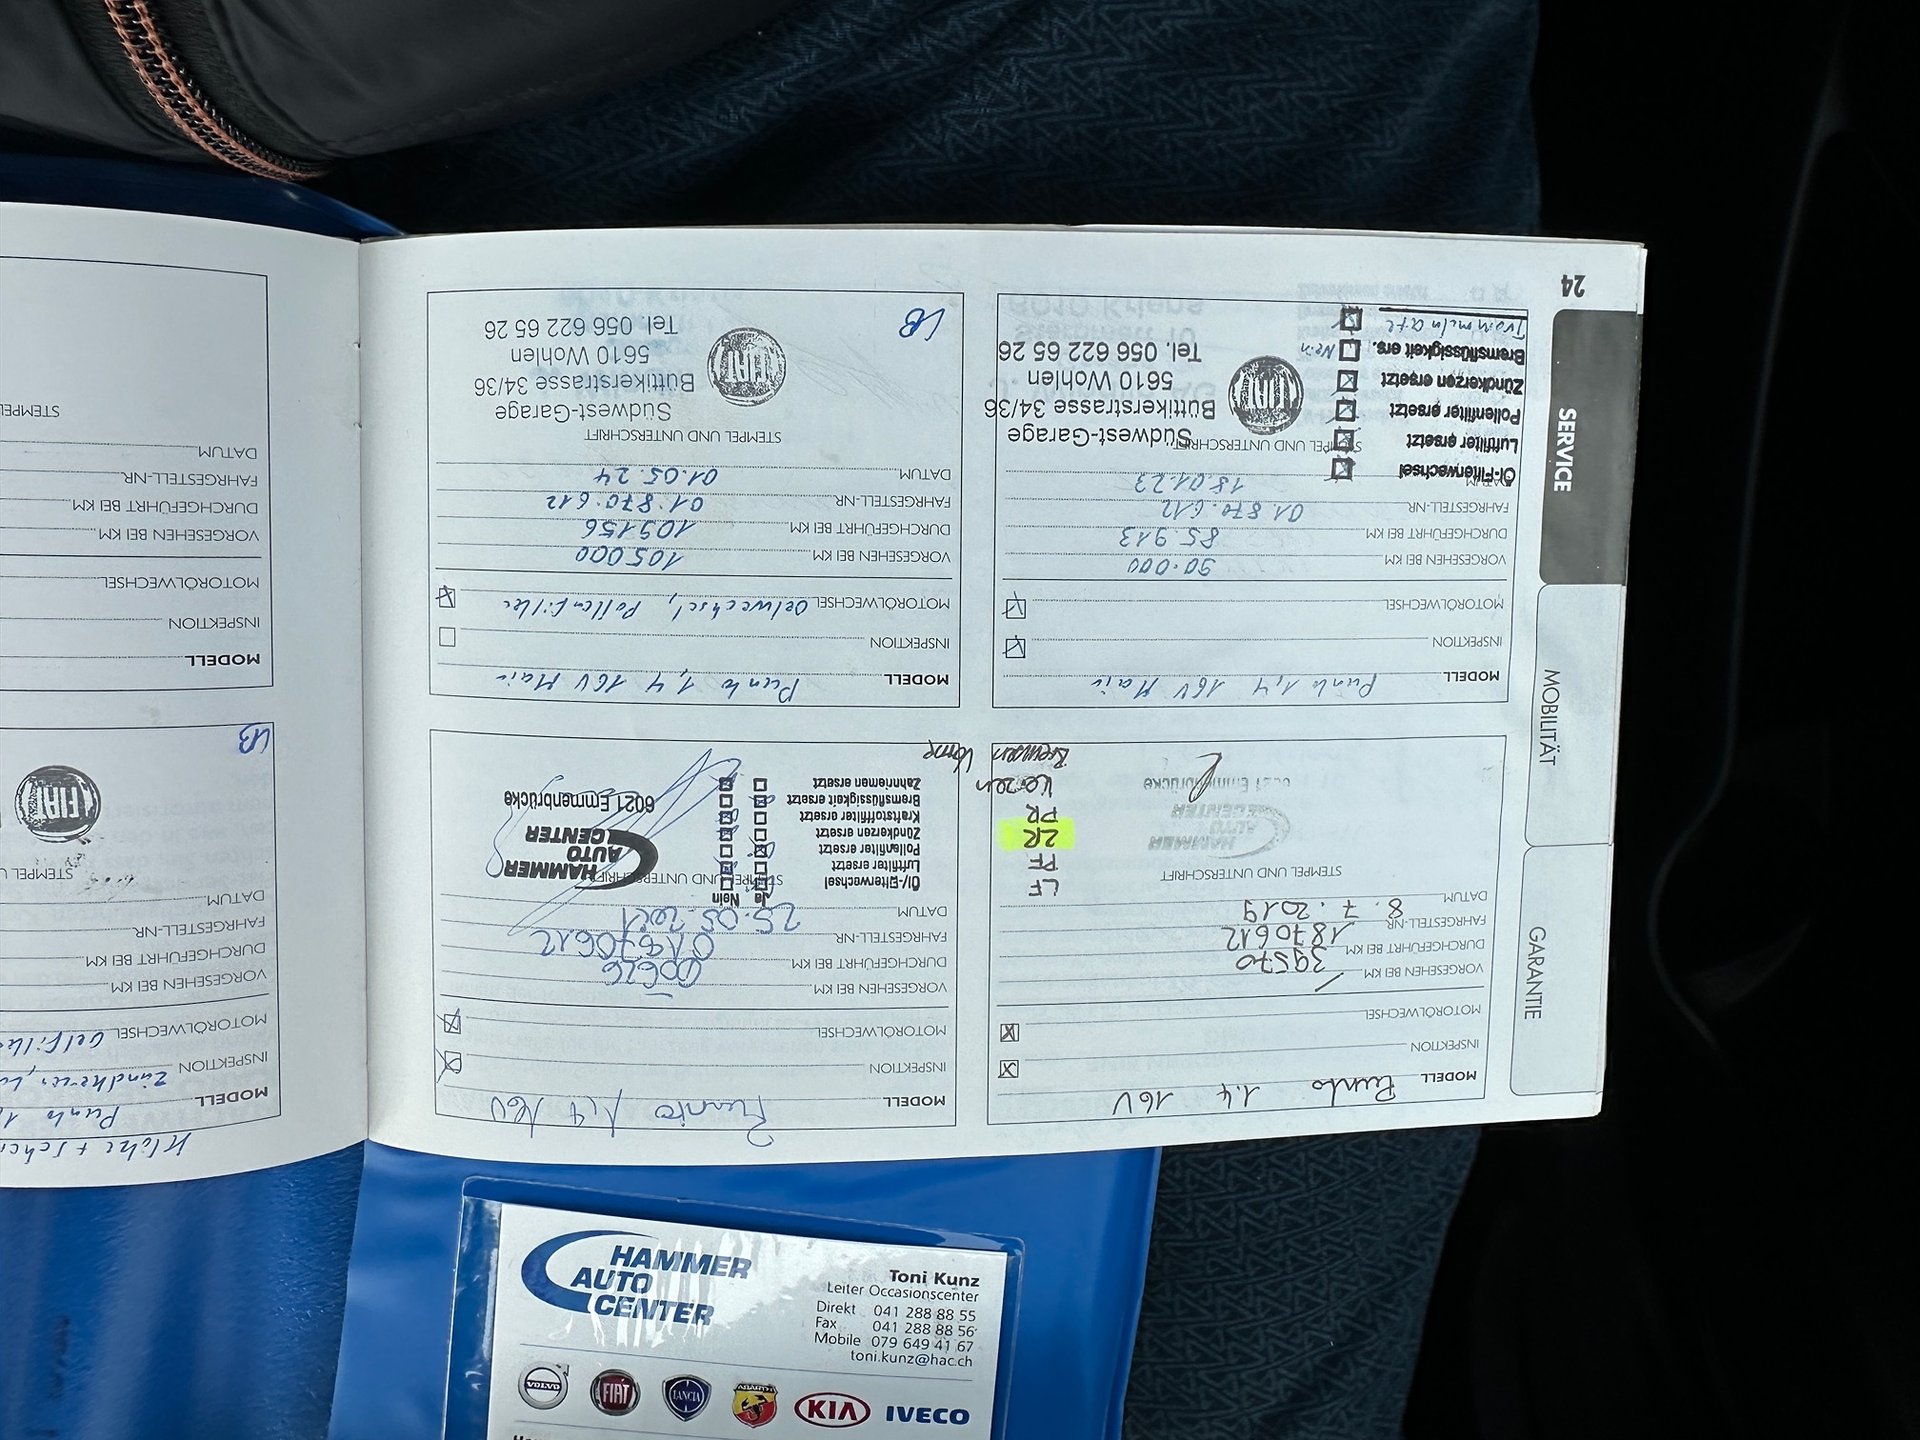 24
SERVICE
MOBILITÄT
GARANTIE
MODELL Punto 1.4 16V
INSPEKTION
MOTORÖLWECHSEL
VORGESEHEN BEI KM
DURCHGEFÜHRT BEI KM 39570
FAHRGESTELL-NR. 1870612
DATUM 8. 7. 2019
STEMPEL UND UNTERSCHRIFT
HAMMER
AUTO
CENTER
6021 Emmenbrücke
LF
PF
ZR
PR
Kerzen
Bremsen Vorne
MODELL Punto 1.4 16V
INSPEKTION
MOTORÖLWECHSEL
VORGESEHEN BEI KM
DURCHGEFÜHRT BEI KM
FAHRGESTELL-NR. 01870612
DATUM 25.05.2021
STEMPEL UND UNTERSCHRIFT
Ja Nein
Öl-/Filterwechsel
Luftfilter ersetzt
Pollenfilter ersetzt
Zündkerzen ersetzt
Kraftstofffilter ersetzt
Bremsflüssigkeit ersetzt
Zahnriemen ersetzt
HAMMER
AUTO
CENTER
6021 Emmenbrücke
MODELL Punto 1,4 16V
INSPEKTION
MOTORÖLWECHSEL
VORGESEHEN BEI KM 90.000
DURCHGEFÜHRT BEI KM 85.913
FAHRGESTELL-NR. 01.870.612
DATUM 18.01.23
STEMPEL UND UNTERSCHRIFT
Öl-Filterwechsel
Luftfilter ersetzt
Pollenfilter ersetzt
Zündkerzen ersetzt
Bremsflüssigkeit ers. Nein
FIAT
Südwest-Garage
Büttikerstrasse 34/36
5610 Wohlen
Tel. 056 622 65 26
MODELL Punto 1,4 16V
INSPEKTION
MOTORÖLWECHSEL Oelwechsel, Pollenfilter
VORGESEHEN BEI KM 105000
DURCHGEFÜHRT BEI KM 109156
FAHRGESTELL-NR. 01.870.612
DATUM 01.05.24
STEMPEL UND UNTERSCHRIFT
FIAT
Südwest-Garage
Büttikerstrasse 34/36
5610 Wohlen
Tel. 056 622 65 26
MODELL Punto
INSPEKTION
MOTORÖLWECHSEL
VORGESEHEN BEI KM
DURCHGEFÜHRT BEI KM
FAHRGESTELL-NR.
DATUM
STEMPEL U
FIAT
MODELL
INSPEKTION
MOTORÖLWECHSEL
VORGESEHEN BEI KM
DURCHGEFÜHRT BEI KM
FAHRGESTELL-NR.
DATUM
STEMPEL
HAMMER
AUTO
CENTER
Toni Kunz
Leiter Occasionscenter
Direkt 041 288 88 55
Fax 041 288 88 56
Mobile 079 649 41 67
toni.kunz@hac.ch
VOLVO
FIAT
LANCIA
ABARTH
KIA
IVECO